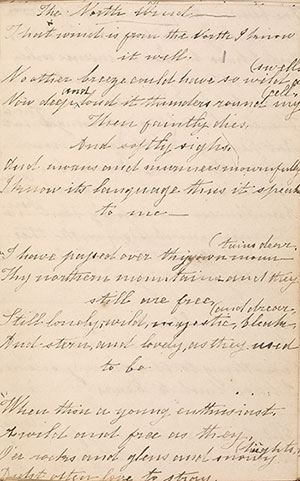 The North Wind—
That wind is from the North I know
it well.
No other breeze could have so wild a
(swell
Now deep and loud it thunders round my
(cell
Then faintly dies,
And softly sighs,
And moans and murmurs mournfully
I know its language thus it speaks
to me—
I have passed over thy own moun
(tains dear,
Thy northern mountains and they
still are free,
Still lonely, wild, majestic, bleak
(and drear,
And stern, and lovely, as they used
to be
When thou a young enthusiast
As wild and free as they,
O'er rocks and glens and snowy
(heights,
Didst often love to stray